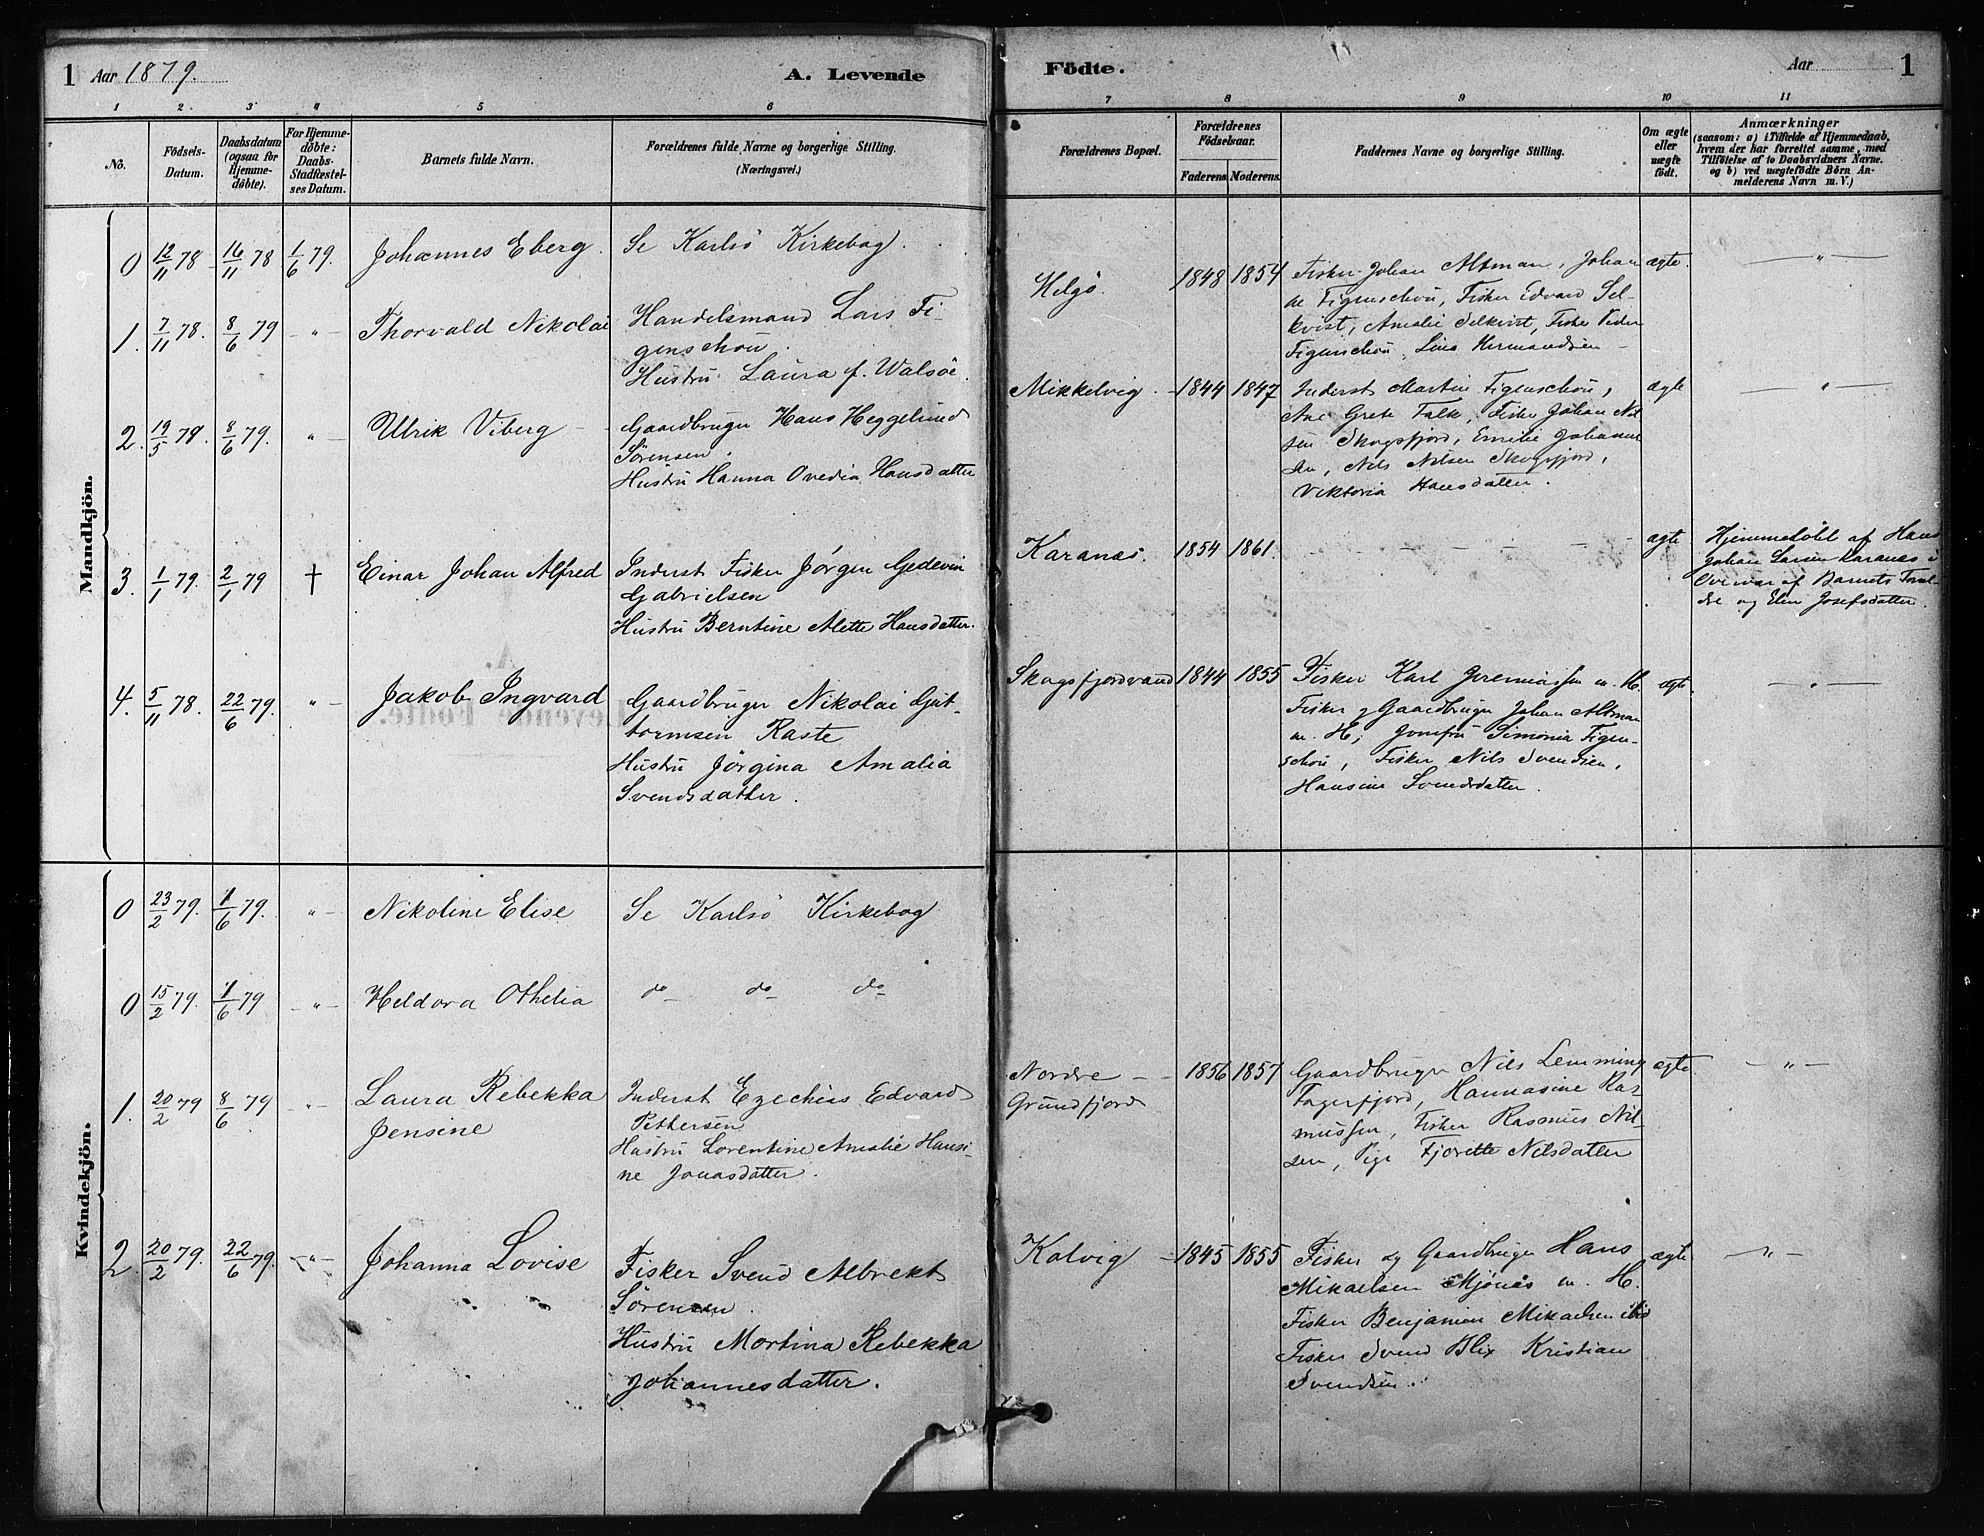 1 Aar 1879. A. Levende Födte. Aar 1
1 2. 3 4 5 6 7 8 9 10 11
No. Födsels-Datum. Daabsdatum (ogsaa for Hjemme-döbte). For Hjemme-döbte: Daabs-Stadfæstel-ses Datum. Barnets fulde Navn. Forældrenes fulde Navne og borgerlige Stilling. (Næringsvei.) Forældrenes Bopæl. Forældrenes Födselsaar. Faderens Moderens. Faddernes Navne og borgerlige Stilling. Om ægte eller uægte födt. Anmærkninger
(saasom: a) i Tilfælde af Hjemmedaab,
hvem der har forrettet samme, med
Tilföielse af to Daabsvidners Navne.
og b) ved uægtefödte Börn An-
melderens Navn m. V.)
Mandkjön.
0 12/11 78 16/11 78 1/6 79. Johannes Eberg. Se Karlsö Kirkebog.
1. 7/11 78. 8/6 79 -"- Thorvald Nikolai Handelsmand Lars Fi-
genschou.
Hustru Laura f. Walsöe.
Helgö. 1848 1854 Fisker Johan Altman, Johan ægte. "
ne Figenschou, Fisker Edvard Sel-
kvist, Amalie Selkvist, Fisker Peder
Figenschou, Lina Hermandsen
2. 19/5 79. 8/6 79. " Ulrik Viberg Gaardbruger Hans Heggelund
Sörensen.
Hustru Hanna Ovedia Hansdatter
Mikkelvig. 1844 1847 Inderst Martin Figenschou, ægte "
Ane Grete Falk, Fisker Johan Nil
sen Skogsfjord, Emilie Johanne
sen, Nils Nilsen Skogsfjord,
Viktoria Hansdatter.
3. 1/1 79. 2/1 79 † Einar Johan Alfred Inderst Fisker Jörgen Gedevin
Gabrielsen
Hustru Berntine Alette Hansdatter.
Karanæs. 1854 1861. - - - - - ægte Hjemmedöbt af Hans
Johan Karanæs i
Overvær af Barnets Foræl-
dre og Elen Josefsdatter.
4. 5/11 78. 22/6 79. " Jakob Ingvard Gaardbruger Nikolai Gut-
tormsen Raste
Hustru Jörgina Amalia
Svendsdatter.
Skogsfjordvand 1844 1855 Fisker Karl Jeremiassen m. H. ægte. "
Fisker og Gaardbruger Johan Altman
m. H; Jomfru Simonia Figen-
schou, Fisker Nils Svendsen,
Hansine Svendsdatter.
Kvindekjön.
0 23/2 79. 1/6 79. " Nikoline Elise Se Karlsö Kirkebog
0 15/2 79. 1/6 79 " Heldora Othelia do do do
1. 20/2 79 8/6 79 " Laura Rebekka
Jensine
Inderst Ezechias Edvard
Pethersen
Hustru Lorentine Amalie Hansi-
ne Jonasdatter.
Nordre
Grundfjord
1856 1857 Gaardbruger Nils Lemming ægte "
Fagerfjord, Hannasine Ras-
mussen, Fisker Rasmus Nil-
sen, Pige Fjorette Nilsdatter
2 20/2 79. 22/6 79. " Johanna Lovise Fisker Svend Albrekt
Sörensen.
Hustru Mortina Rebekka
Johannesdatter.
Kalvig 1845 1855 Fisker og Gaardbruger Hans ægte "
Mikaelsen Mjönæs m. H.
Fisker Benjamin Mikaelsen ibid
Fisker Svend Blix Kristian
Svendsen.